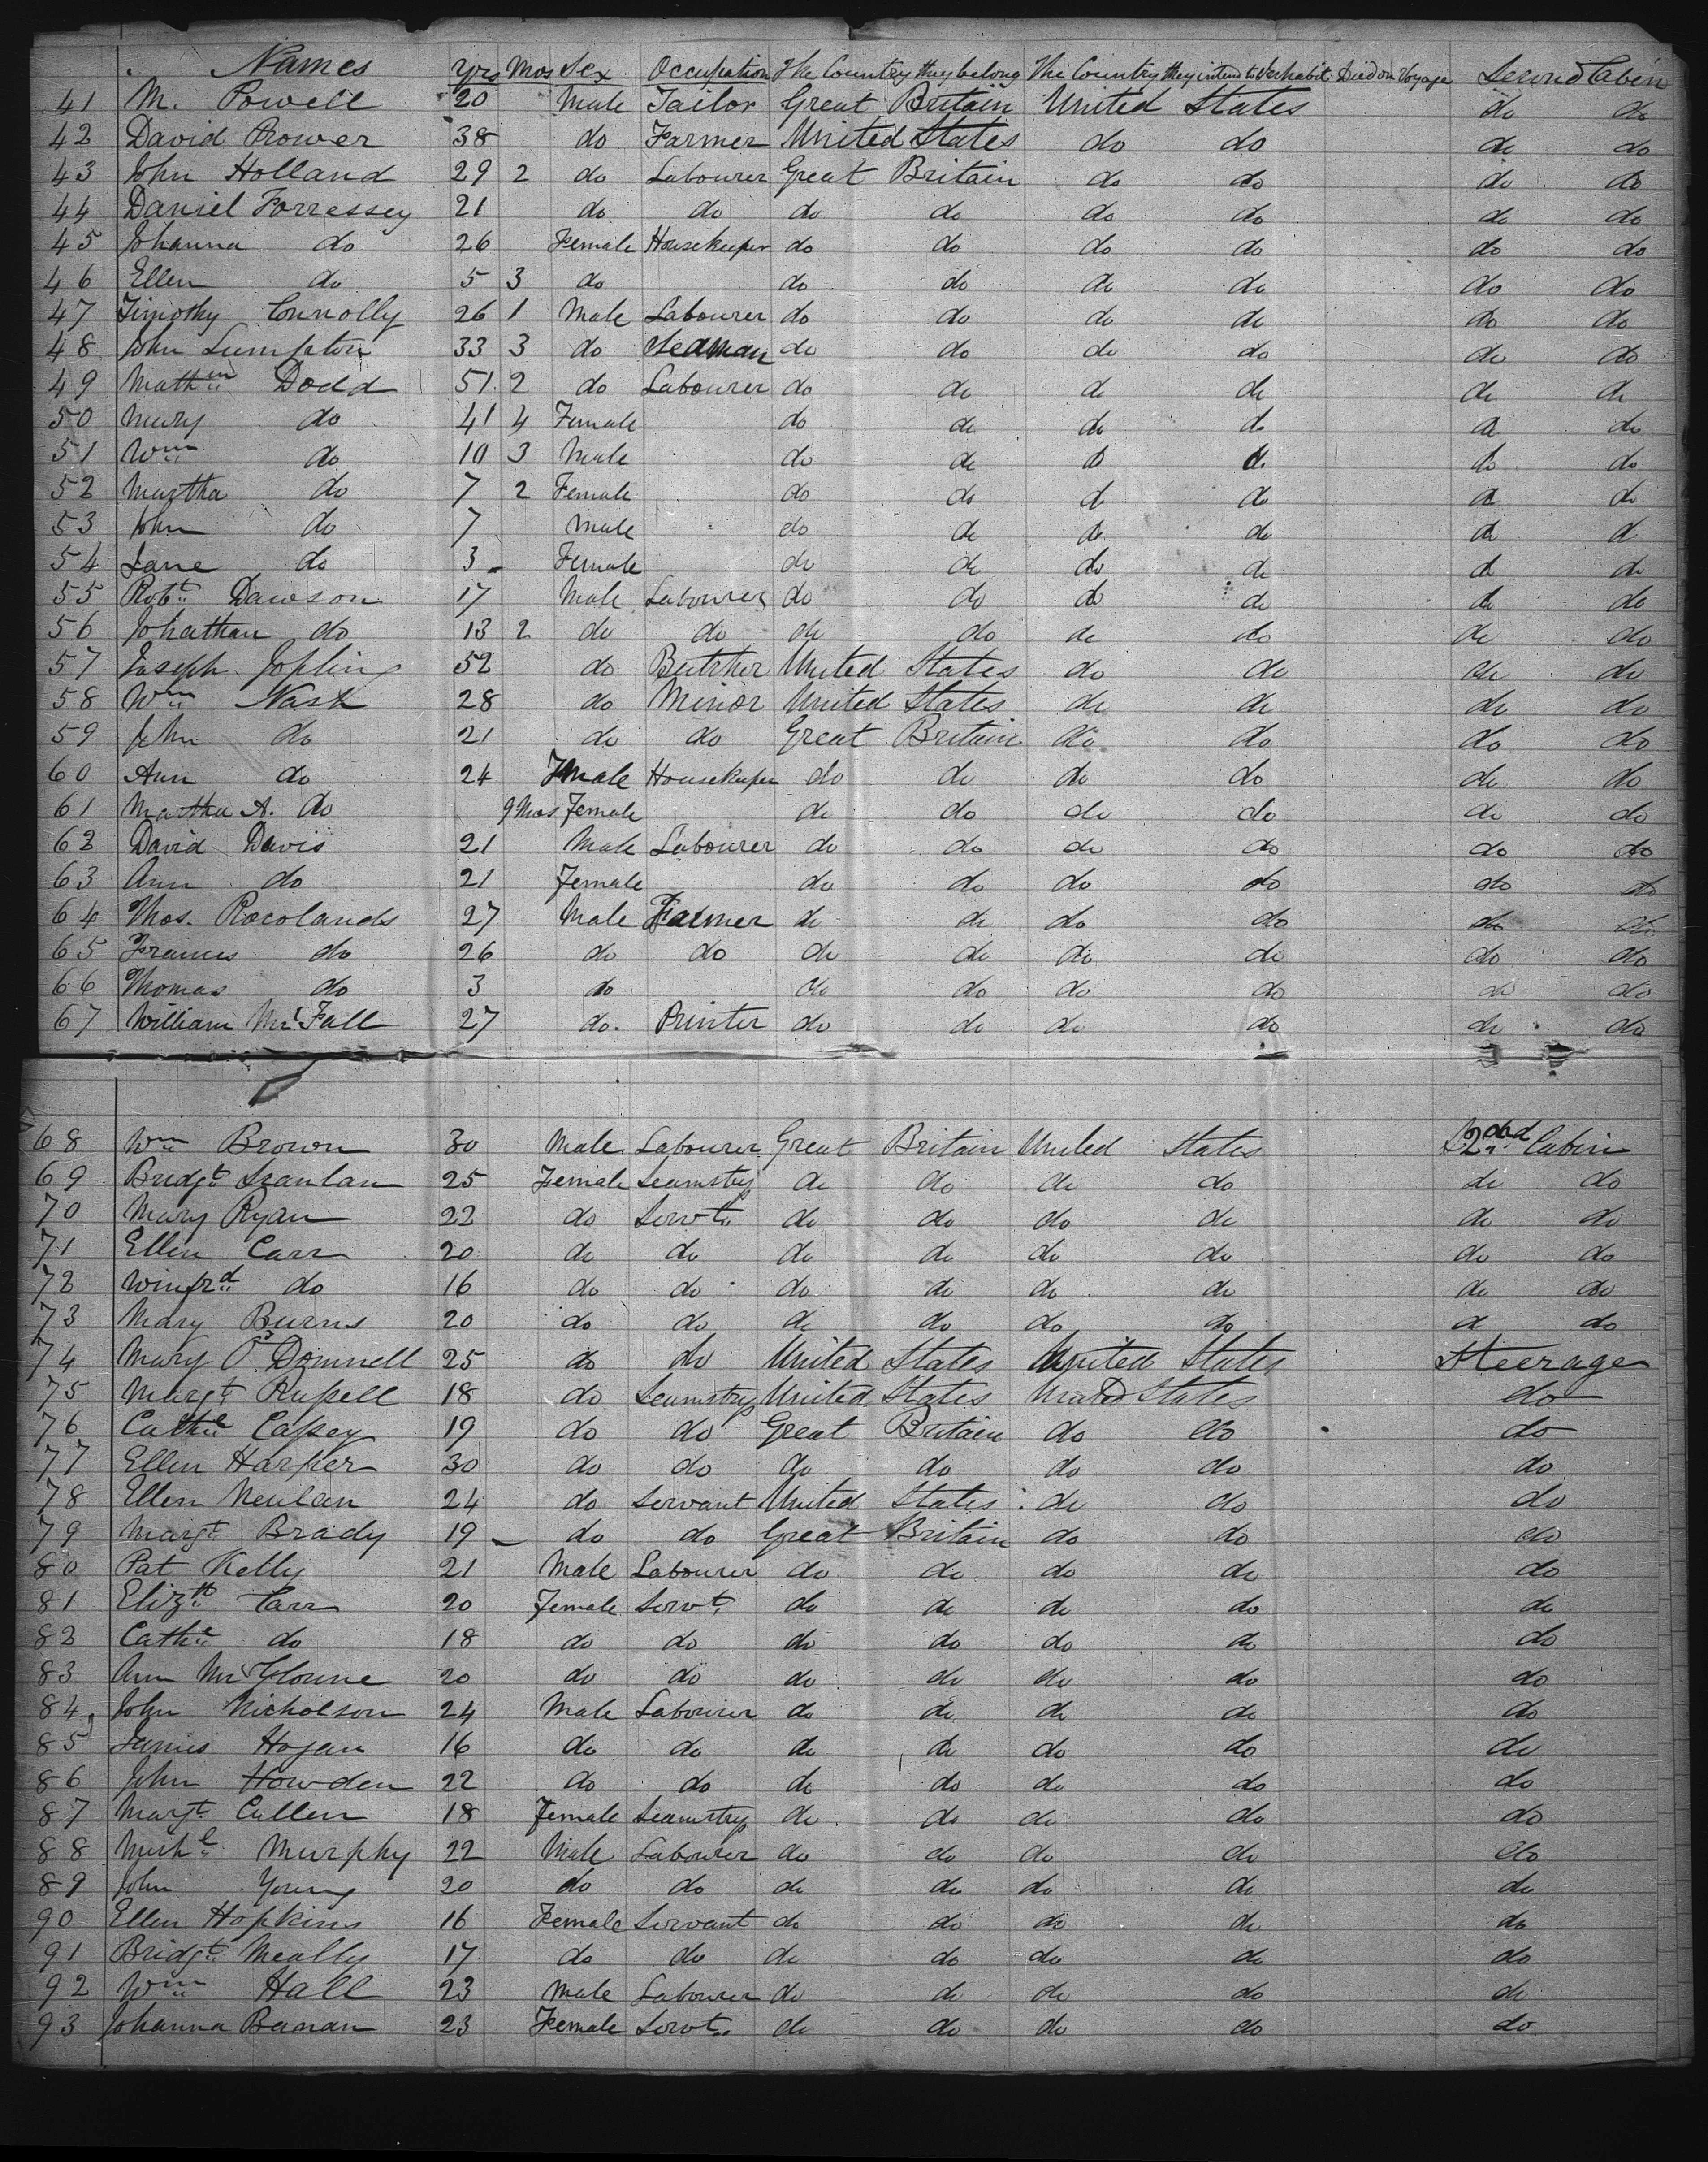 Names Yrs Mos Sex Occupation The Country they belong The Country they intend to Inhabit Died on Voyage Second Cabin
41 M. Powell 20 Male Tailor Great Britain United States do do
42 David Prower 38 do Farmer United States do do do do
43 John Holland 29 2 do Labourer Great Britain do do do do
44 Daniel Forressey 21 do do do do do do do do
45 Johanna do 26 Female Housekeeper do do do do do do
46 Ellen do 5 3 do do do do do do do
47 Timothy Connolly 26 1 Male Labourer do do do do do do
48 John Lumpton 33 3 do Seaman do do do do do do
49 Dodd 51 2 do Labourer do do do do do do
50 Mary do 41 4 Female do do do do do do
51 Wm do 10 3 Male do do do do do do
52 Martha do 7 2 Female do do do do do do
53 John do 7 Male do do do do do do
54 Jane do 3 Female do do do do do do
55 Robt Dawson 17 Male Labourer do do do do do do
56 Johathan do 13 2 do do do do do do do do
57 Joseph Jopling 52 do Butcher United States do do do do
58 Wm Nash 28 do Minor United States do do do do
59 John do 21 do do Great Britain do do do do
60 Ann do 24 Female Housekeeper do do do do do do
61 Martha A. do 9 Mos Female do do do do do do
62 David Davis 21 Male Labourer do do do do do do
63 Ann do 21 Female do do do do do do
64 Thos. Rocolands 27 Male Farmer do do do do do do
65 Frances do 26 do do do do do do do do
66 Thomas do 3 do do do do do do do
67 William McFall 27 do. Printer do do do do do do
68 Wm Brown 30 Male Labourer Great Britain United States 2nd Cabin
69 Bridgt Scanlan 25 Female Seamstress do do do do do do
70 Mary Ryan 22 do Servt do do do do do do
71 Ellen Carr 20 do do do do do do do do
72 Winfrd do 16 do do do do do do do do
73 Mary Burns 20 do do do do do do do do
74 Mary O'Domnell 25 do do United States United States Steerage
75 Margt Russell 18 do Seamstress United States United States do
76 Cathe Cassey 19 do do Great Britain do do do
77 Ellen Harper 30 do do do do do do do
78 Ellen Neulan 24 do Servant United States do do do
79 Margt Brady 19 do do Great Britain do do do
80 Pat Kelly 21 Male Labourer do do do do do
81 Elizth Carr 20 Female Servt do do do do do
82 Cathe do 18 do do do do do do do
83 Ann McGloune 20 do do do do do do do
84 John Nicholson 24 Male Labourer do do do do do
85 James Hogan 16 do do do do do do do
86 John Howden 22 do do do do do do do
87 Margt Cullen 18 Female Seamstress do do do do do
88 Michl Murphy 22 Male Labourer do do do do do
89 John Young 20 do do do do do do do
90 Ellen Hopkins 16 Female Servant do do do do do
91 Bridgt Meally 17 do do do do do do do
92 Wm Hall 23 Male Labourer do do do do do
93 Johanna Banan 23 Female Servt do do do do do